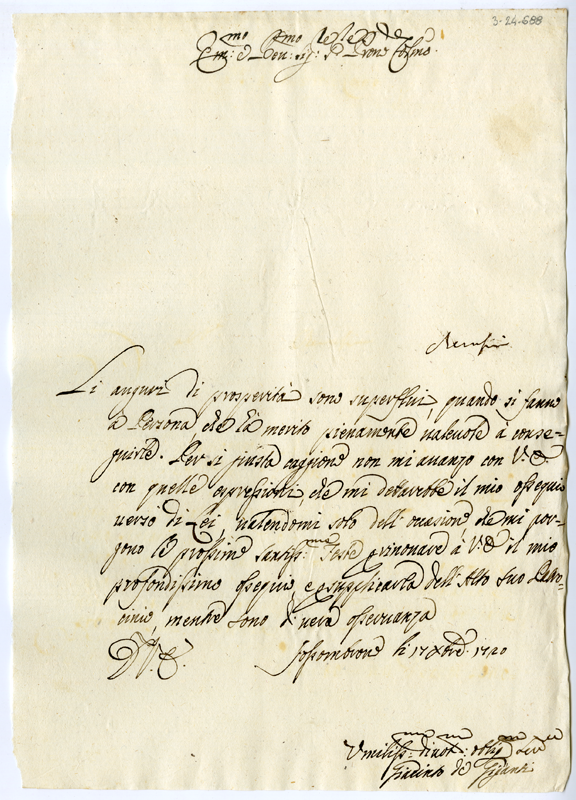 3-24-688
Li auguri di prosperità sono superflui, quando si fanno
à Persona che hà merito pienamente valevole à conse-
guirle. Per sì giusta cagione non mi avanzo con V.E.
con quelle espressioni, che mi detterebbe il mio ossequio
verso di Lei, valendomi solo dell'occasione, che mi por-
gono le prossime santiss:me Feste per rinovare à V.E. il mio
profondissimo ossequio, e supplicarla dell'Alto suo Patro-
cinio, mentre sono di vera osservanza
D.V.E.
Fossombrone li 17 Xbre 1720
Umiliss:mo divot:mo oblig:mo
Giacinto de